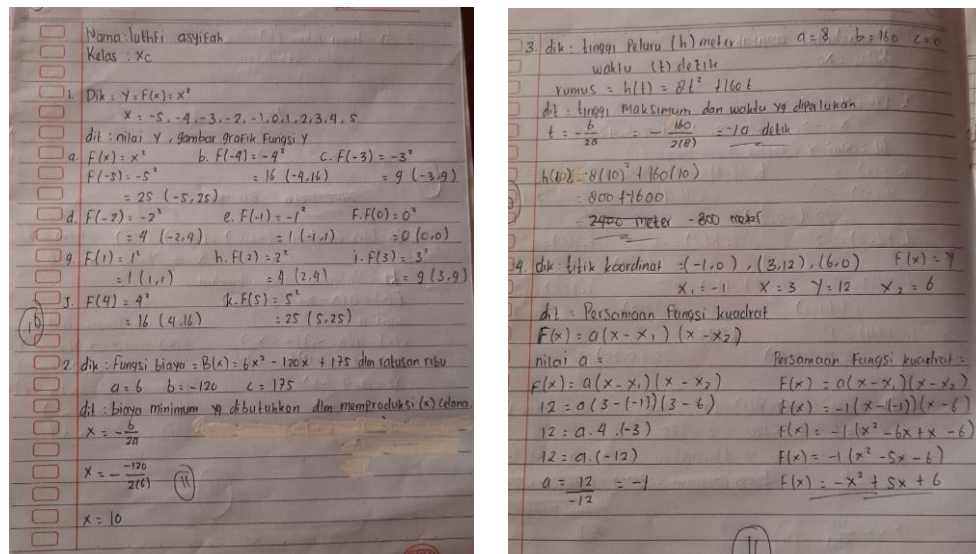 Nama : luthfi asyifah
Kelas : Xc
1. Dik : Y = F(x) = x²
X = -5, -4, -3, -2, -1, 0, 1, 2, 3, 4, 5
dit : nilai Y, gambar grafik fungsi Y
a. F(x) = x² b. F(-4) = -4² c. F(-3) = -3²
F(-5) = -5² = 16 (-4,16) = 9 (-3,9)
= 25 (-5,25)
d. F(-2) = -2² e. F(-1) = -1² F. F(0) = 0²
= 4 (-2,4) = 1 (-1,1) = 0 (0,0)
g. F(1) = 1² h. F(2) = 2² i. F(3) = 3²
= 1 (1,1) = 4 (2,4) = 9 (3,9)
J. F(4) = 4² k. F(5) = 5²
= 16 (4,16) = 25 (5,25)
2. dik : Fungsi biaya = B(x) = 6x² - 120x + 175 dlm ratusan ribu
a = 6 b = -120 c = 175
dit : biaya minimum yg dibutuhkan dlm memproduksi (x) celana.
x = - b/2a
x = - -120/2(6) 11
x = 10
3. dik : tinggi Peluru (h) meter a = 8 b = 160 c = 0
waktu (t) detik
rumus = h(t) = 8t² + 160t
dit : tinggi maksimum dan waktu yg diperlukan
t = - b/2a = - 160/2(8) = -10 detik
h(10) = -8(10)² + 160(10)
= 800 + 1600
= 2400 meter -800 meter
4. dik : titik koordinat = (-1,0), (3,12), (6,0) F(x) = Y
X₁ = -1 X = 3 Y = 12 X₂ = 6
dit : Persamaan Fungsi kuadrat
F(x) = a(x - x₁) (x - x₂)
nilai a = Persamaan Fungsi kuadrat =
F(x) = a(x - x₁)(x - x₂) F(x) = a(x - x₁)(x - x₂)
12 = a(3 - (-1))(3 - 6) F(x) = -1(x - (-1))(x - 6)
12 = a. 4 . (-3) F(x) = -1 (x² - 6x + x - 6)
12 = a. (-12) F(x) = -1 (x² - 5x - 6)
a = 12/-12 = -1 F(x) = -x² + 5x + 6
11